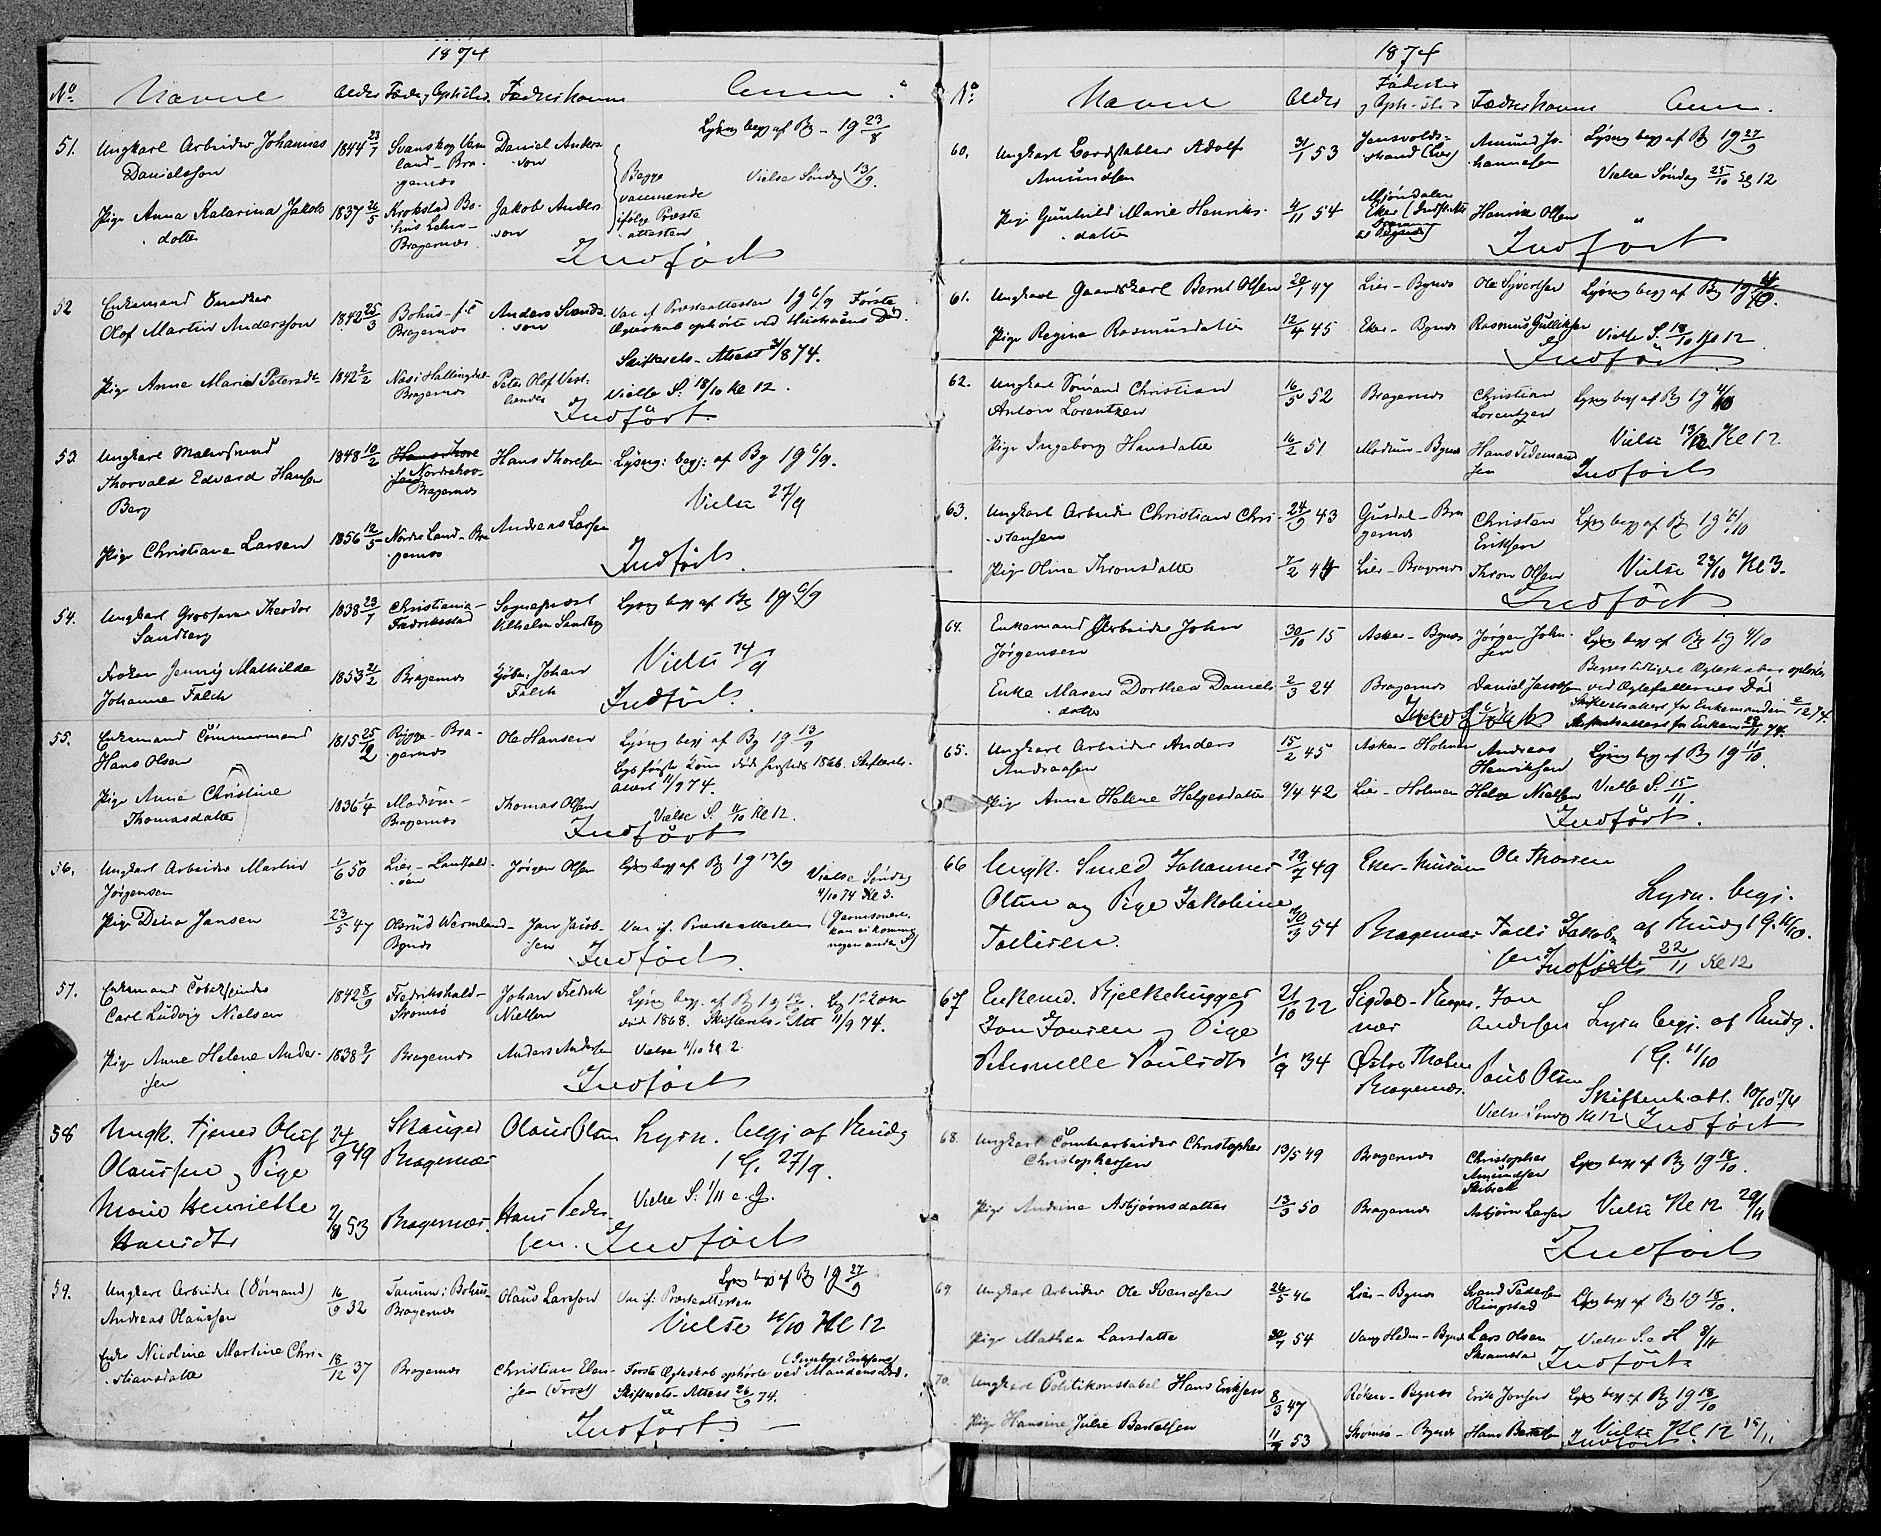 1874
No. Navne Alder Føde og Opholdst. Fædres Navne Anm.
51. Ungkarl Arbeider Johannes Danielsson 1844 23/7 Svanskog Verm
land - Bra-
gernæs
Daniel Anders
son
Lysng begj af By - 1g 23/8
Begge
vaccinerede
ifølge Præste
attesten
Vielse Søndag 13/9.
Pige Anna Katarina Jakobs
dotter
1837 26/5 Krokstad Bo-
hus Lehn -
Bragernæs
Jakob Anders
son
Indført
52 Enkemand Snedker
Olof Martin Andersson
1842 25/3 Bohus
Bragernæs
Anders Svends
son
Vac. if. Præsteattesten 1g 6/9 Første
Ægteskab ophørte ved Hustruens Død
Skifterets-Attest 31/8 74.
Pige Anne Marie Petersdr
1842 2/2 Næs i Hallingdal
Bragernæs
Peter Olof Vest-
lender
Vielse S. 18/10 Kl 12.
Indført.
53. Ungkarl Malersvend
Thorvald Edvard Hansen
Berg
1848 10/2 Norderhov
Bragernæs
Hans Thoresen
Lysng: begj: af By 1g 6/9.
Vielse 27/9
Pige Christiane Larsen
1856 12/5 Nordre Land - Bra
gernæs
Andreas Larsen
Indført.
54. Ungkarl Grosserer Theodor
Sandberg
1838 23/7 Christiania -
Fredriksstad
Sogneprest
Vilhelm Sandberg
Lysng begj af By 1g 6/9
Vielse 14/9
Frøken Jenny Mathilde
Johanne Falch
1853 21/2 Bragernæs
Kjøbm: Johan
Falch
Indført.
55. Enkemand Tømmermand
Hans Olsen
1815 25/12 Rygge - Bra-
gernæs
Ole Hansen
Lysng begj af By 1g 13/9
første Kone død 1866. Skifterets-
attest 11/9 74.
Pige Anne Christine
Thomasdatter
1836 1/4 Modum -
Bragernæs
Thomas Olsen
Vielse S. 11/10 Kl 12.
Indført
56. Ungkarl Arbeider Martin
Jørgensen
1/6 50 Lier - Landfald-
øen
Jørgen Olsen
Lysng begj af By 1g 13/9
Vielse Søndag
4/10 74 Kl 3.
Pige Dina Jansen
23/5 47 Wermland -
Bynæs
Jan Jacob-
sen
Vac if. Præsteattesten
Indført.
57. Enkemand Tobakspinder
Carl Ludvig Nielsen
1842 8/9 Fredrikshald -
Strømsø
Johan Fredrik
Nielsen
Lysng begj. af By 1g 13/9. 1ste Kone
død 1868. Skifterets-Att 11/9 74.
Pige Anne Helene Ander-
sen
1838 9/1 Bragernæs
Anders Andersen
Vielse 11/10 Kl 2.
Indført
58 Ungk. Tjener Oluf
Olaussen og Pige
Marie Henriette
Hansdtr
24/9 49 Skauger
Bragernæs
Olaus Olsen
Lysn. begj af Knudg
1 G. 27/9.
Vielse S. 1/11 e. G.
53 Bragernæs.
Hans Peder
sen.
Indført
59. Ungkarl Arbeider (Sømand)
Andreas Olaussen
16/9 32 Tanum i Bohus
Bragernæs
Olaus Larsson
Lysng begj af By 1g 27/9
Vac if: Præsteattesten
Vielse 11/10 Kl 12
Enke Nicoline Martine Chri-
stiansdatter
18/12 37 Bragernæs
Christian Elen-
sen (Troel)
Første Ægteskab ophørte ved Mandens Død.
Skifterets-Attest 26/9 74.
Indført.
1874
No. Navne Alder Fødested
og Oph.sted Fædres Navne Anm.
60. Ungkarl Bordstabler Adolf
Amundsen
31/1 53 Jensvolds-
strand (Lier)
Amund Jo-
hannesen
Lysng begj af By 1g 27/9
Vielse Søndag 25/10 Kl 12
Pige Gunhild Marie Henriks-
datter
4/11 54 Mjøndalen
Eker
Henrik Olsen
Indført
61. Ungkarl Gaardskarl Bernt Olsen
20/1 47 Lier - Bynæs
Ole Syvertsen
Lysng begj af By 1g 4/10.
Pige Regine Rasmusdatter
12/4 45 Eker - Bynæs
Rasmus Gulliksen
Vielse S. 18/10 Kl 12
Indført.
62. Ungkarl Sømand Christian
Anton Lorentzen
16/5 52 Bragernæs
Christian
Lorentzen
Lysng begj af By 1g 4/10
Pige Ingeborg Hansdatter
16/2 51 Modum - Bynæs
Hans Tidemand
sen
Vielse 13/12 Kl 12
Indført
63. Ungkarl Arbeider Christian Chri-
stensen
24/9 43 Gusdal - Bra
gernæs
Christen
Eriksen
Lysng begj af By 1g 4/10
Pige Oline Thronsdatter
7/2 44 Lier - Bragernæs
Thron Olsen
Vielse 23/10 Kl 3.
Indført
64. Enkemand Arbeider John
Jørgensen
30/10 15 Asker - Bynæs
Jørgen John-
sen
Lysng begj af By 1g 4/10
Begges tidligere Ægteskaber opløste
ved Ægtefællernes Død
Enke Maren Dorthea Daniels
datter
2/3 24 Bragernæs
Daniel Jacobsen
Skifteretsattest for Enkemanden 2/12 74.
Skifteretsattest for Enken 74.
65. Ungkarl Arbeider Anders
Andreasen
15/2 45 Asker - Holmen
Andreas
Henriksen
Lysng begj af By 1g 11/10.
Pige Anne Helene Helgesdatter
9/4 42 Lier - Holmen
Helge Nielsen
Vielse S. 15/11.
Indført.
66 Ungk. Smed Johannes
Olsen og Pige Jakobine
Tollisen.
29/7 49 Eker - Muusøen
Ole Thorsen
Lysn. begj.
af Knudg 1 G. 11/10.
54 Bragernæs
Tolli Jakob
sen
Indført 22/11 Kl 12
67 Enkemd. Bjelkehugger
Jan Jansen og Pige
Petronelle Poulsdtr
21/10 22 Sigdal - Brager-
næs
Jan
Andersen
Lysn begj. af Knudg.
1 G. 11/10
1/9 34 Østre Thoten
Bragernæs.
Poul Olsen
Skifteretsatt. 10/10 1874
Vielse Søndag Kl 12
Indført
68. Ungkarl Tomtearbeider Christopher
Christophersen
13/5 49 Bragernæs
Christopher
Amundsen
Lysng begj af By 1g 18/10.
Pige Andrine Asbjørnsdatter
13/3 50 Bragernæs
Asbjørn Larsen
Vielse Kl 12 29/11
Indført
69. Ungkarl Arbeider Ole Svendsen
26/5 46 Lier - Bynæs
Svend Pedersen
Ringstad
Lysng begj af By 1g 18/10.
Pige Mathea Larsdatter
54 Vang Hedm - Bynæs
Lars Olsen
Vielse S. e H 8/11
Indført.
70. Ungkarl Politikonstabel Hans Eriksen
8/3 47 Røken - Bynæs
Erik Jonsen
Lysng begj af By 1g 18/10
Pige Hansine Julie Bertelsen
53 Strømsø - Bynæs
Hans Bertelsen
Vielse Kl 12 15/11
Indført.